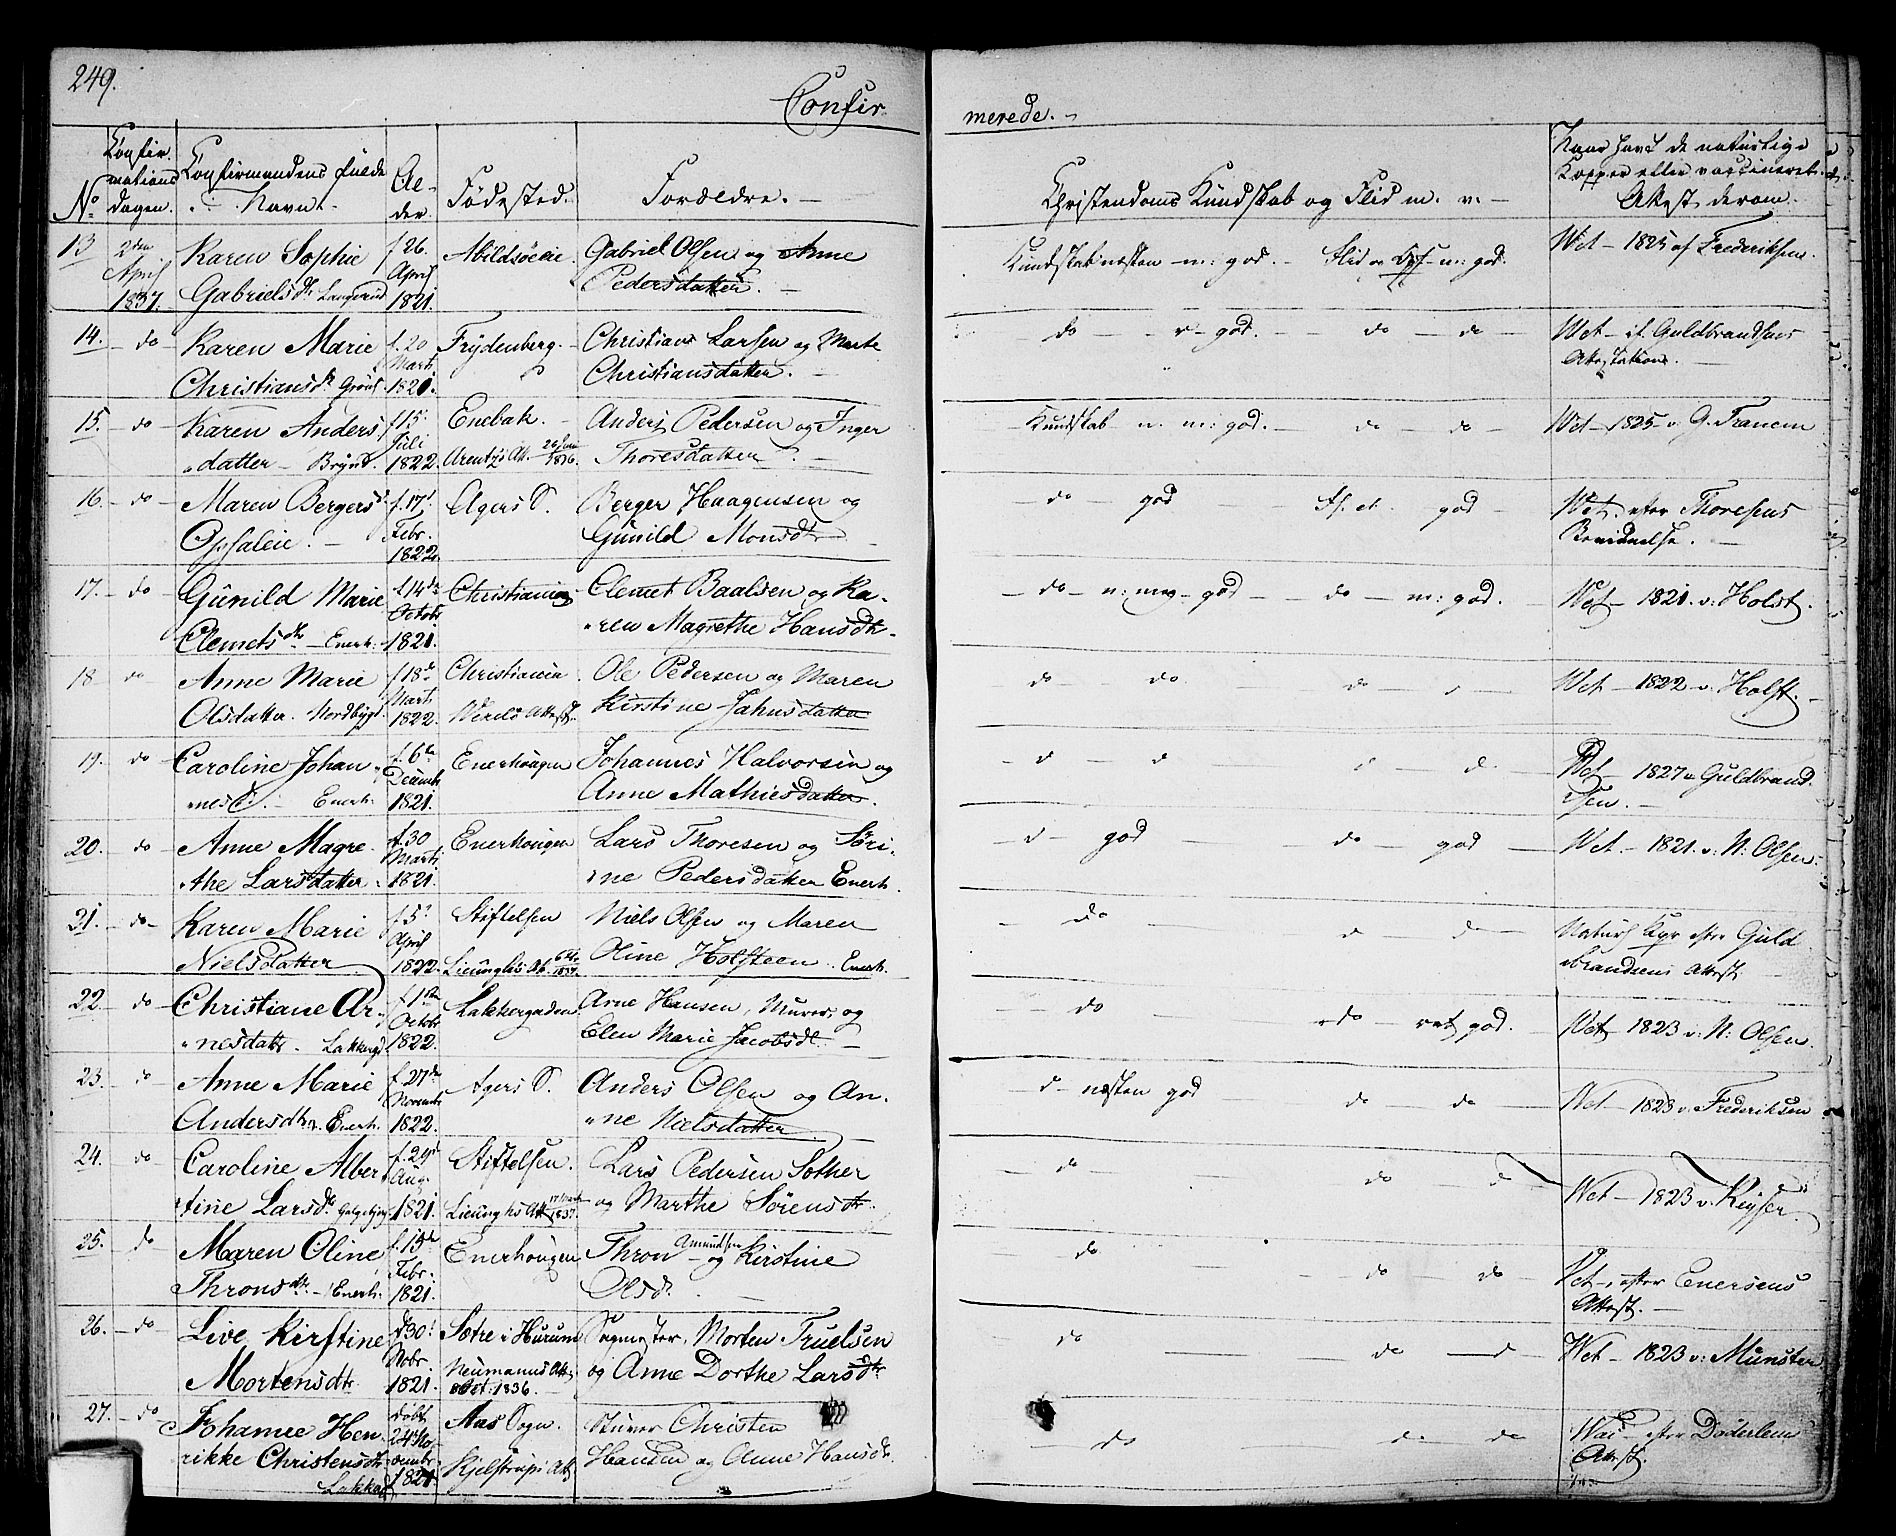 249.
Confir
merede.
No
Confir-
mations
dagen.
Confirmandens fulde
Navn.
Al-
der
Fødested.
Forældre.
Christendoms Kundskab og Flid m. v.
Naar havt de naturlige
Kopper eller vaccineret.
Attest derom.
13 2den April 1837. Karen Sophie Gabrielsdr Langerud f 26. April 1821. Abildsöeie. Gabriel Olsen og Anne Pedersdatter. Kundskab næsten m: god. Flid og Opf. m: god. Vct. 1825 af Frederiksen.
14. do Karen Marie Christiansdr f. 20 Marti 1821. Frydenberg. Christian Larsen og Marte Christiansdatter. do v. god. do do Vct. Guldbrandsens Attestation.
15. do Karen Anders datter Brynt. f 15. Juli 1822. Enebak. Arentz's Att. 1836. Anders Pedersen og Inger Thoresdatter. Kundskab n. m: god. do do Vct. 1825 v. G. Francen
16. do Maren Bergers Opsaleie. f. 17. Febr. 1822. Agers S. Berger Haagensen og Gunild Monsdtr do god Fl. god Vct. efter Thoresens Bevidnelse.
17. do Gunild Marie Clemetsdtr Enerh. f 14de Octobr 1821. Christiania Clemet Baalsen og Ka-
ren Magrethe Hansdtr. do n: meg. god do m: god. Vct 1821. v. Holst.
18 do Anne Marie Olsdatter. Nordbygd. f 18de Marti 1822. Christiania Wexels Attest. Ole Pedersen og Maren Kirstine Jahnsdatter do do do Vct 1822 v. Holst.
19. do Caroline Johan
nesd. Enerh. f. 6te Decembr 1821. Enerhougen Johannes Halvorsen og Anne Mathiesdatter. d d d. Vct 1827 v Guldbrand
sen.
20. do Anne Magre-
the Larsdatter f. 30 Marti 1821. Enerhougen Lars Thoresen og Söri-
ne Pedersdatter Enerh. d god do god Vct. 1821. v: N: Olsen.
21. do Karen Marie Nielsdatter f. 5. April 1822. Stiftelsen 1837. Niels Olsen og Maren Oline Holsteen. Enerh. do d d Guld
brandsens Attest
22. do Christiane Ar
nesdatr. Lakkergd f 1ste Octobr 1822. Lakkergaden Arne Hansen, Murer, og Elen Marie Jacobsd. do do ret god. Vct 1823 v. N: Olsen.
23. do Anne Marie Andersdtr. Enerh. f. 27de Novembr 1822. Agers S. Anders Olsen og An-
ne Nielsdatter d næsten god do do Vct 1823 v. Frederiksen
24. do Caroline Alber
tine Larsd. f. 29d Aug. 1821. Stiftelsen. 1837. Lars Pedersen Sother og Marthe Sörensdtr. do do d Vct 1823 v. Keyser.
25. do Maren Oline Thronsdtr. Enerh. f. 13de Febr: 1821. Enerhougen Thron Amundsen og Kirstine Olsd. do do do Vct. efter Enersens Attest.
26. do Live Kirstine Mortensdtr d 30. Nobr. 1821. Sætre i Hurum Neumanns Att. 8 Oct: 1836. Sagmester, Morten Truelsen og Anne Dorthe Larsdtr do do d Vct 1823 v: Münster
27. do Johanne Hen
rikke Christensdtr Lakkeg døbt 24 No
vembr 1821 Aas Sogn. Kjelstrups Att. Sturer Christen Hansen og Anne Hansdtr. do do do Vac efter Döderleins Attest.